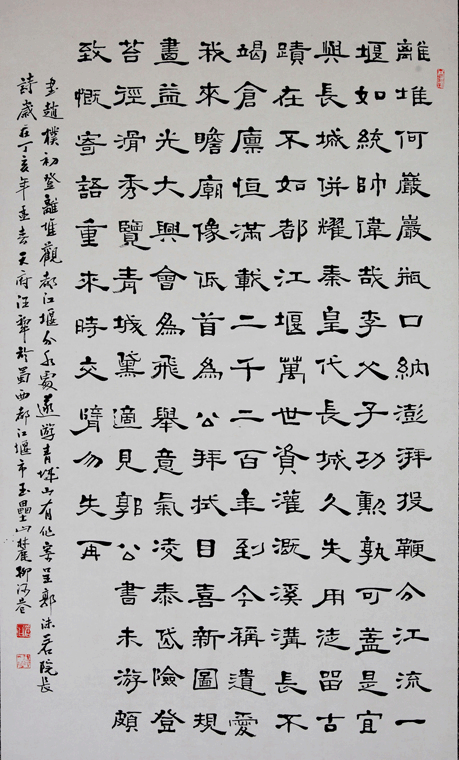 離堆何巖巖瓶口納澎湃投鞭分江流一
堰如統帥偉哉李父子功勳孰可蓋是宜
與長城併耀秦皇代長城久失用徒留古
蹟在不如都江堰萬世資灌溉溪溝長不
竭倉廩恒滿載二千二百年到今稱遺愛
我來瞻廟像低首為公拜拭目喜新圖規
畫益光大興會為飛舉意氣凌泰岱險登
苔徑滑秀覽青城黛適見郭公書未游頗
致慨寄語重來時交臂勿失再
書趙樸初登離堆觀都江堰分水處遂遊青城山有作寄呈郭沫若院長
詩歲在丁亥年孟春天府汪犂於蜀西都江堰市玉壘山麓柳河巷